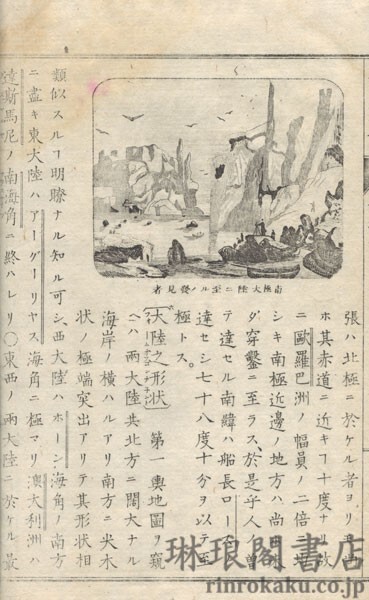 南極大陸ニ至ルノ發見者
張ハ北極ニ於ケル者ヨリモ
ホ其赤道ニ近キヿ十度ナリ故
ニ歐羅巴洲幅員ノ二倍
シキ南極近邊ノ地方ハ尚未
ダ穿鑿ニ至ラス、於是乎人ノ曾
テ達セル南緯ハ船長ロース
達セシ七十八度十分ヲ以テ至
極トス。
大陸之形狀 第一輿地圖ヲ窺
ヘハ兩大陸共北方ニ闊大ナル
海岸ノ横ハルアリ南方ニ尖木
狀ノ極端突出アリテ其形狀相
類似スルヿ明瞭ナル知ル可シ、西大陸ハホーン海角ノ南方
ニ盡キ東大陸ハアーグーリヤス海角ニ極マリ澳大利洲ハ
達斯馬尼ノ南海角ニ終ハレリ〇東西ノ兩大陸ニ於ケル最
琳琅閣書店
rinrokaku.co.jp